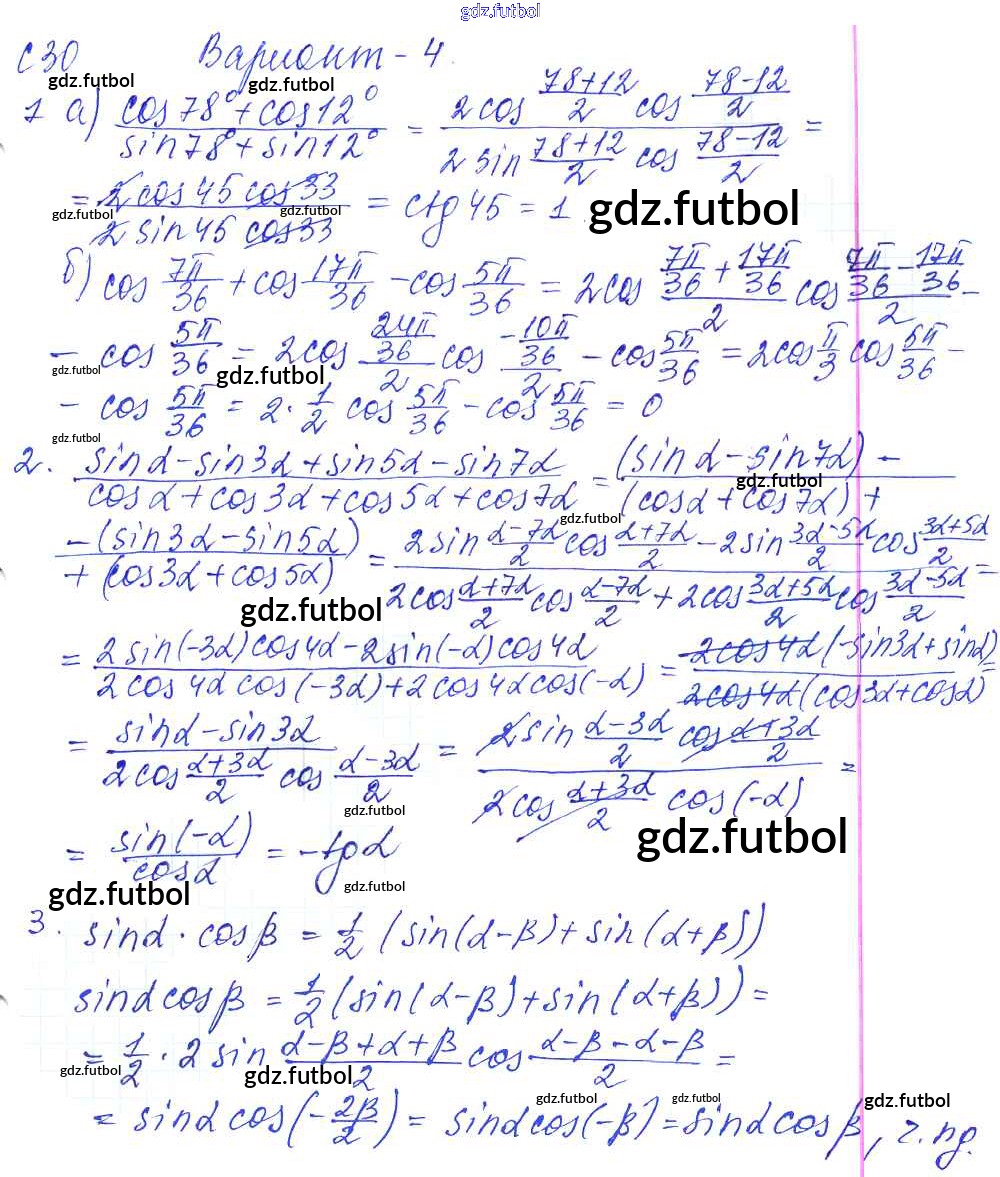 gdz.futbol
С30 Вариант - 4.
gdz.futbol gdz.futbol
1 а) (cos78° + cos12°)/(sin78° + sin12°) = (2cos (78+12)/2 cos (78-12)/2)/(2sin (78+12)/2 cos (78-12)/2) =
= (2cos45 cos33)/(2sin45 cos33) = ctg45 = 1
gdz.futbol gdz.futbol gdz.futbol
б) cos 7π/36 + cos 17π/36 - cos 5π/36 = 2cos (7π/36 + 17π/36)/2 cos (7π/36 - 17π/36)/2 -
- cos 5π/36 = 2cos (24π/36)/2 cos (-10π/36)/2 - cos 5π/36 = 2cos π/3 cos 5π/36 -
gdz.futbol gdz.futbol
- cos 5π/36 = 2 · 1/2 cos 5π/36 - cos 5π/36 = 0
gdz.futbol
2. (sinα - sin3α + sin5α - sin7α)/(cosα + cos3α + cos5α + cos7α) = ((sinα - sin7α) -)/((cosα + cos7α) +)
gdz.futbol
gdz.futbol
(-(sin3α - sin5α))/(+(cos3α + cos5α)) = (2sin (α-7α)/2 cos (α+7α)/2 - 2sin (3α-5α)/2 cos (3α+5α)/2)/(2cos (α+7α)/2 cos (α-7α)/2 + 2cos (3α+5α)/2 cos (3α-5α)/2) =
gdz.futbol
= (2sin(-3α)cos4α - 2sin(-α)cos4α)/(2cos4α cos(-3α) + 2cos4α cos(-α)) = (2cos4α(-sin3α + sinα))/(2cos4α(cos3α + cosα)) =
= (sinα - sin3α)/(2cos (α+3α)/2 cos (α-3α)/2) = (2sin (α-3α)/2 cos (α+3α)/2)/(2cos (α+3α)/2 cos(-α)) =
gdz.futbol gdz.futbol
= sin(-α)/cosα = -tgα
gdz.futbol gdz.futbol
3. sinα · cosβ = 1/2 (sin(α-β) + sin(α+β))
sinα cosβ = 1/2 (sin(α-β) + sin(α+β)) =
= 1/2 · 2 sin (α-β+α+β)/2 cos (α-β-α-β)/2 =
gdz.futbol gdz.futbol
= sinα cos(-2β/2) = sinα cos(-β) = sinα cosβ, ч.тд.
gdz.futbol gdz.futbol gdz.futbol